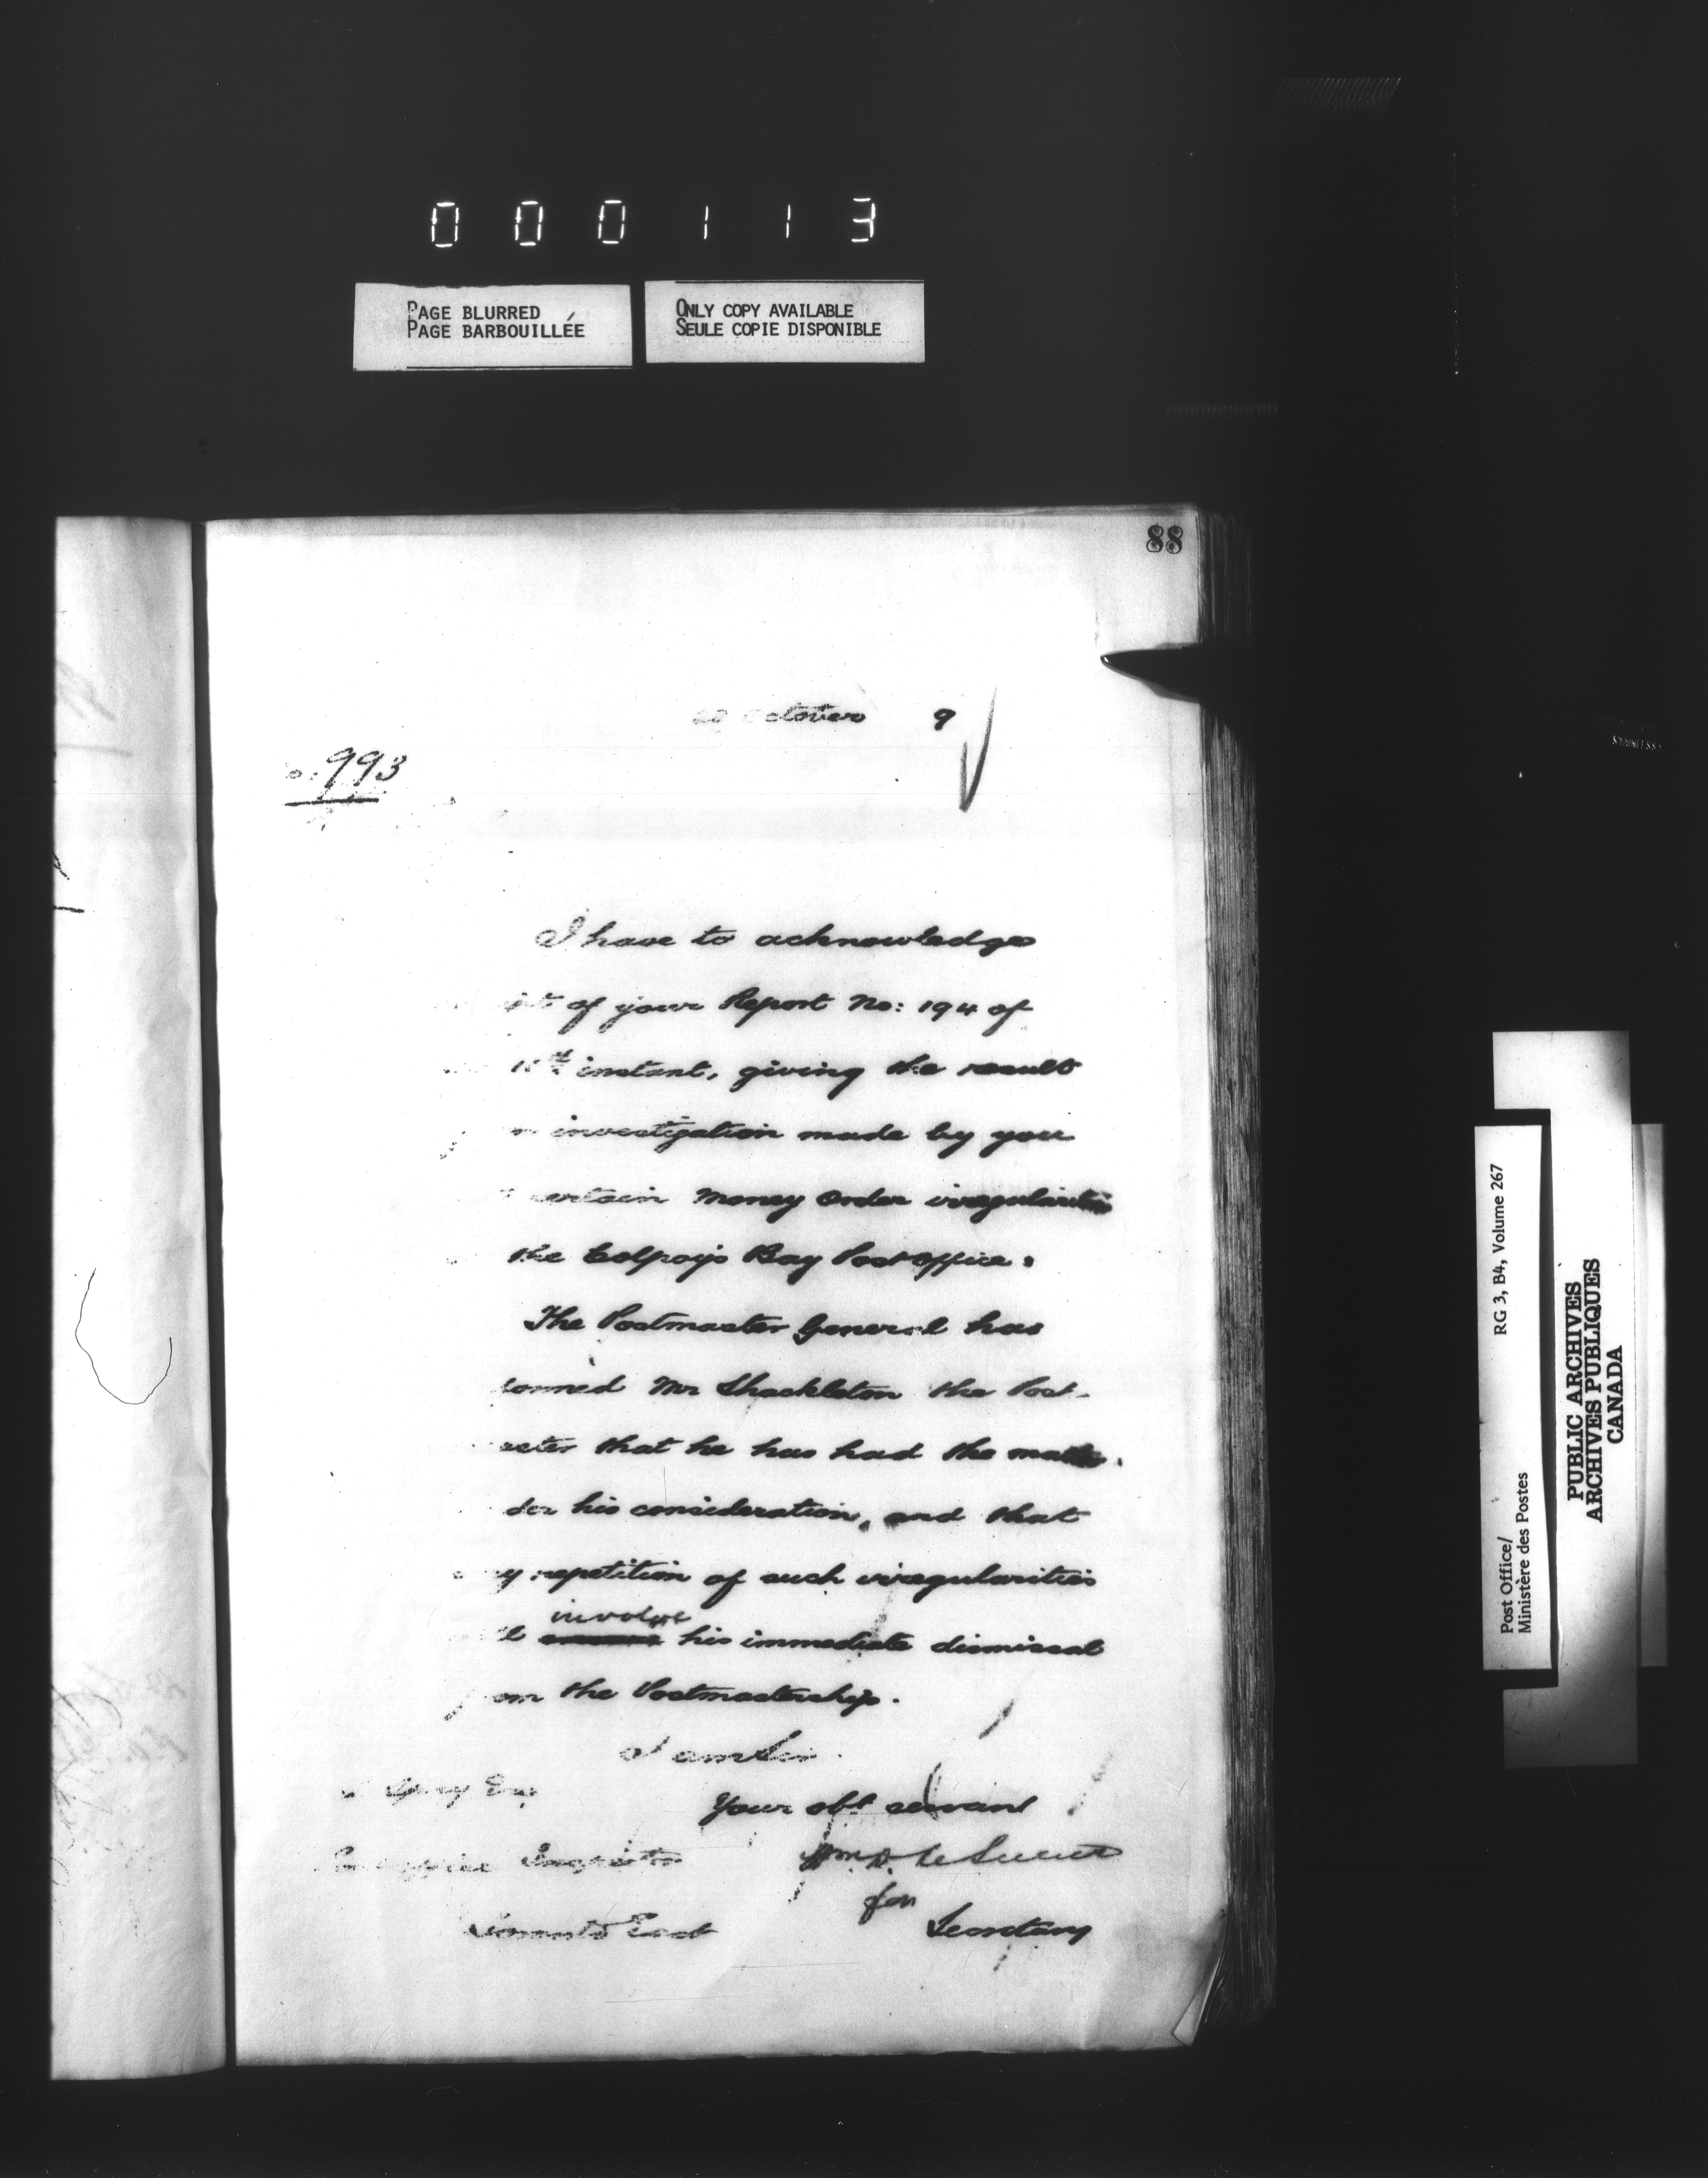 000113
PAGE BLURRED
PAGE BARBOUILLÉE
ONLY COPY AVAILABLE
SEULE COPIE DISPONIBLE
88
October 9
993
I have to acknowledge
of your Report No: 194 of
instant, giving the result
investigation made by you
certain Money Order irregularities
the Colpoys Bay Post Office.
The Postmaster General has
Mr Shackleton the Post-
that he has had the matter
his consideration, and that
repetition of such irregularities
involve
his immediate dismissal
the Postmastership.
I am Sir
Your obt servant
Inspector
for
Toronto East
Secretary
Post Office/
Ministère des Postes
RG 3, B4, Volume 267
PUBLIC ARCHIVES
ARCHIVES PUBLIQUES
CANADA